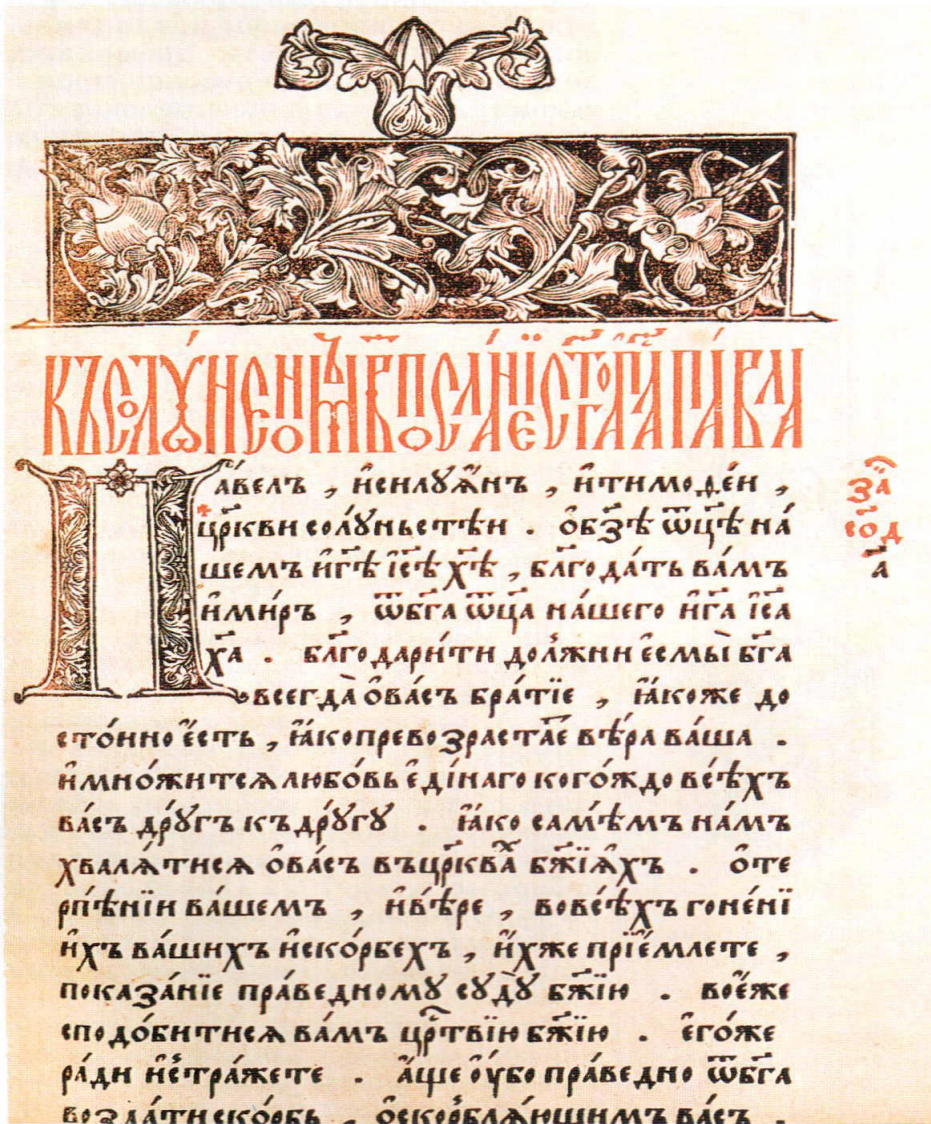 КЪСОЛꙊНЄѠ҆МЪВ҃ПОСЛАНЇЄСТ҃ГОАП҃ЛАПАВЛА
Па́велъ , и҆силꙋа́нъ , и҆тимоѳе́и ,
цр҃кви солꙋ́ньстѣи . ѻ҆бз҃ѣ ѿц҃ѣ на́
шемъ и҆г҃ѣ і҆с҃ѣ х҃ѣ , бл҃года́ть ва́мъ
и҆ми́ръ , ѿбг҃а ѿц҃а на́шего и҆г҃а і҆с҃а
х҃а . бл҃годари́ти до́лжни є҆смы̀ бг҃а
всегда̀ ѻ҆ва́съ бра́тїе , ꙗ҆́коже до
сто́йно є҆́сть , ꙗ҆́копревозраста́е вѣ́ра ва́ша .
и҆мно́житсѧ любо́вь є҆ді́наго кого́ждо всѣ́хъ
ва́съ дрꙋ́гъ къдрꙋ́гꙋ . ꙗ҆́ко самѣ́мъ на́мъ
хвалѧ́тисѧ ѻ҆ва́съ въцр҃ква́х бж҃їѧхъ . ѻ҆те
рпѣ́нїи ва́шемъ , и҆вѣ́ре , вовсѣ́хъ гоне́нї
и҆хъ ва́шихъ и҆ско́рбехъ , и҆́хже прїе́млете ,
показа́нїе пра́ведномꙋ сꙋдꙋ̀ бж҃їю . воє҆́же
сподо́битисѧ ва́мъ цр҃твїю бж҃їю . є҆го́же
ра́ди и҆стра́жете . а҆́ще ѹ҆́бо пра́ведно ѿбг҃а
возда́ти ско́рбь , ѻ҆скорблѧ́ющимъ ва́съ .
за҄
со҃д
а҃